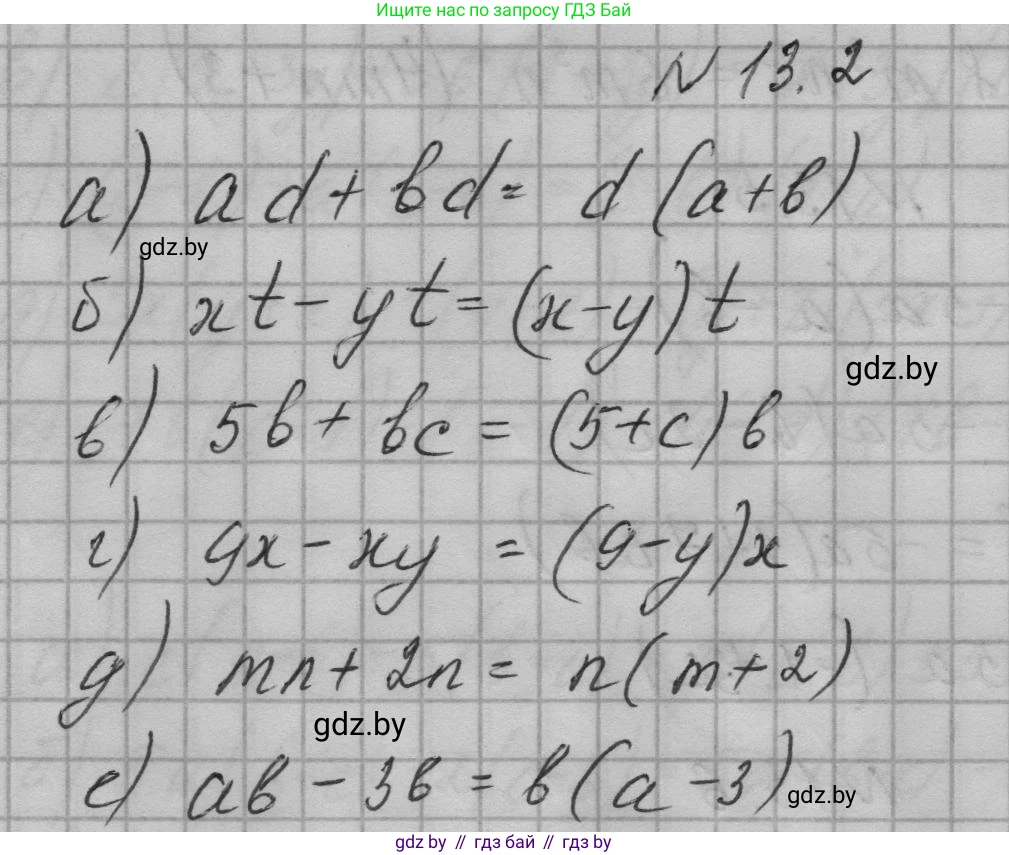 Ищите нас по запросу ГДЗ Бай
N 13.2
а) ad + bd = d (a+b)
gdz.by
б) xt - yt = (x-y) t
gdz.by
в) 5b + bc = (5+c) b
г) 9x - xy = (9-y)x
д) mn + 2n = n(m+2)
gdz.by
е) ab - 3b = b(a-3)
gdz.by
gdz.by // гдз бай // gdz.by